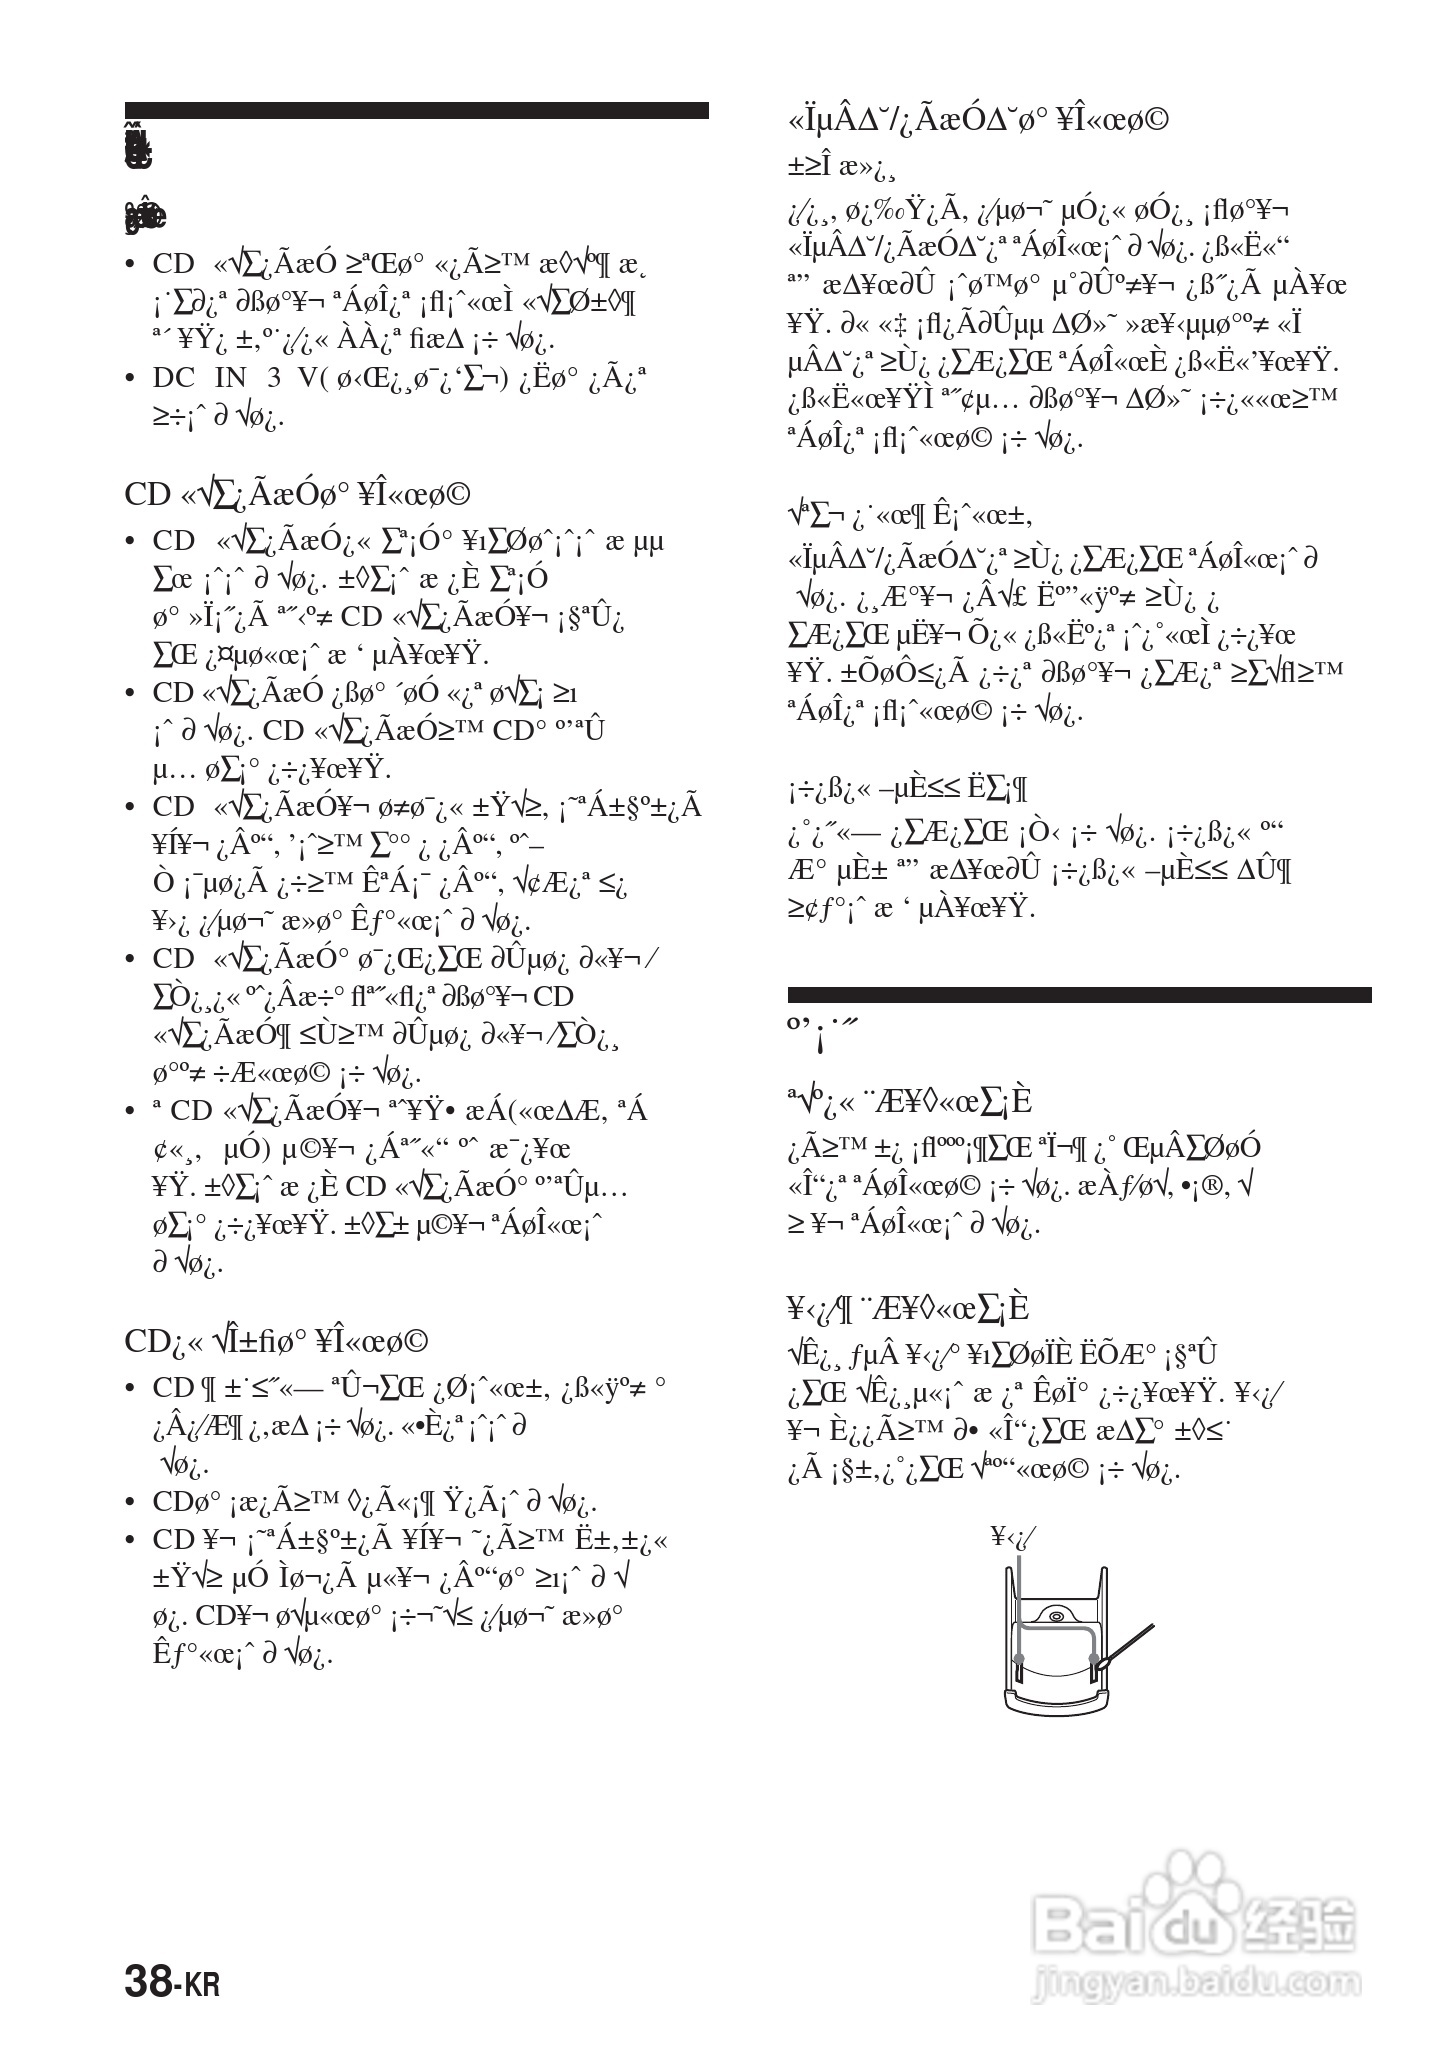 • CD «√∑¿ÃæÓ ≥ªŒø° «¿Ã≥™ æ◊√º¶ æ˛
¡˙∑∂¿ª ∂ßø°¥¬ ªÁøÎ¿ª ¡ﬂ¡ˆ«œÌ «√∑Ø±◊¶
ª´ ¥Ÿ¿ ±‚º˙¿⁄¿« ÀÀ¿ª ﬁæ∆ ¡÷ √ø¿.
• DC IN 3 V( ø‹Œ¿¸ø¯¿‘∑¬) ¿Ëø° ¿Ã¿ª
≥÷¡ˆ ∂ √ø¿.
CD «√∑¿ÃæÓø° ¥Î«œø©
• CD «√∑¿ÃæÓ¿« ∑ª¡Ó° ¥ı∑Øøˆ¡ˆ¡ˆ æ µµ
∑œ ¡ˆ¡ˆ ∂ √ø¿. ±◊∑¡ˆ æ ¿È ∑ª¡Ó
ø° »Ï¡˝¿Ã ª˝‹º≠ CD «√∑¿ÃæÓ¥¬ ¡§ªÛ¿
∑Œ ¿¤µø«œ¡ˆ æ ‘ µÀ¥œ¥Ÿ.
• CD «√∑¿ÃæÓ ¿ßø° ´øÓ «¿ª ø√∑¡ ≥ı
¡ˆ ∂ √ø¿. CD «√∑¿ÃæÓ≥™ CD° º’ªÛ
µ… ø∑¡° ¿÷¿¥œ¥Ÿ.
• CD «√∑¿ÃæÓ¥¬ ø≠ø¯¿« ±Ÿ√≥, ¡˜ªÁ±§º±¿Ã
¥Í¥¬ ¿Âº“, ’¡ˆ≥™ ∑°° ¿ ¿Âº“, ºˆ–
Ò ¡¯µø¿Ã ¿÷≥™ ÊªÁ¡¯ ¿Âº“, √¢Æ¿ª ≤¿
¥›¿ ¿⁄µø¬˜ æ»ø° Êƒ°«œ¡ˆ ∂ √ø¿.
• CD «√∑¿ÃæÓ° ø¯¿Œ¿∑Œ ∂Ûµø¿ ∂«¥¬ ⁄
∑Ò¿¸¿« ºˆ¿Âæ÷° ﬂª˝«ﬂ¿ª ∂ßø°¥¬ CD
«√∑¿ÃæÓ¶ ≤Ù≥™ ∂Ûµø¿ ∂«¥¬ ⁄∑Ò¿¸
ø°º≠ ÷Æ«œø© ¡÷ √ø¿.
• ª CD «√∑¿ÃæÓ¥¬ ªˆ¥Ÿ• æÁ(«œ∆Æ, ªÁ
¢«¸, µÓ) µ©¥¬ ¿Áª˝«“ ºˆ æ¯¿¥œ
¥Ÿ. ±◊∑¡ˆ æ ¿È CD «√∑¿ÃæÓ° º’ªÛµ…
ø∑¡° ¿÷¿¥œ¥Ÿ. ±◊∑± µ©¥¬ ªÁøÎ«œ¡ˆ
∂ √ø¿.
CD¿« √Î±ﬁø° ¥Î«œø©
• CD ¶ ±˙≤˝«— ªÛ¬∑Œ ¿Ø¡ˆ«œ±‚ ¿ß«ÿº≠ °
¿Â¿⁄Æ¶ ¿‚æ∆ ¡÷ √ø¿. «•È¿ª ¡ˆ¡ˆ ∂
√ø¿.
• CDø° ¡æ¿Ã≥™ ◊¿Ã«¡¶ Ÿ¿Ã¡ˆ ∂ √ø¿.
• CD ¥¬ ¡˜ªÁ±§º±¿Ã ¥Í¥¬ ˜¿Ã≥™ Ë±‚±¿«
±Ÿ√≥ µÓ Ìø¬¿Ã µ«¥¬ ¿Âº“ø° ≥ı¡ˆ ∂ √
ø¿. CD¥¬ ø√µ«œø° ¡÷¬˜√≤ ¿⁄µø¬˜ æ»ø°
Êƒ°«œ¡ˆ ∂ √ø¿.
«ÏµÂ∆˘/¿ÃæÓ∆˘ø° ¥Î«œø©
±≥Î æ»¿¸
¿⁄¿¸, ø¿‰Ÿ¿Ã, ¿⁄µø¬˜ µÓ¿« øÓ¿¸ ¡ﬂø°¥¬
«ÏµÂ∆˘/¿ÃæÓ∆˘¿ª ªÁøÎ«œ¡ˆ ∂ √ø¿. ¿ß«Ë«“
ª” æ∆¥œ∂Û ¡ˆø™ø° µ˚∂Ûº≠¥¬ ¿ß˝¿Ã µÀ¥œ
¥Ÿ. ∂« «‡ ¡ﬂ¿Ã∂Ûµµ ∆Ø»˜ »æ¥‹µµø°º≠ «Ï
µÂ∆˘¿ª ≥Ù¿ ¿∑Æ¿∑Œ ªÁøÎ«œÈ ¿ß«Ë«’¥œ¥Ÿ.
¿ß«Ë«œ¥ŸÌ ª˝¢µ… ∂ßø°¥¬ ∆Ø»˜ ¡÷¿««œ≥™
ªÁøÎ¿ª ¡ﬂ¡ˆ«œø© ¡÷ √ø¿.
√ª∑¬ ¿˙«œ¶ Ê¡ˆ«œ±‚
«ÏµÂ∆˘/¿ÃæÓ∆˘¿ª ≥Ù¿ ¿∑Æ¿∑Œ ªÁøÎ«œ¡ˆ ∂
√ø¿. ¿¸Æ°¥¬ ¿Â√£ Ëº”«ÿº≠ ≥Ù¿ ¿
∑Æ¿∑Œ µË¥¬ Õ¿« ¿ß«Ëº¿ª ¡ˆ¿˚«œÌ ¿÷¿¥œ
¥Ÿ. ±ÕøÔ≤¿Ã ¿÷¿ª ∂ßø°¥¬ ¿∑Æ¿ª ≥∑√ﬂ≥™
ªÁøÎ¿ª ¡ﬂ¡ˆ«œø© ¡÷ √ø¿.
¡÷¿ß¿« –µÈ≤≤ Ë∑¡¶
¿˚¿˝«— ¿∑Æ¿∑Œ ¡Ò‹ ¡÷ √ø¿. ¡÷¿ß¿« º“
Æ° µÈ± ª” æ∆¥œ∂Û ¡÷¿ß¿« –µÈ≤≤ ∆Û¶
≥¢ƒ°¡ˆ æ ‘ µÀ¥œ¥Ÿ.
º’¡˙˝
ª√º¿« ¨Æ¥◊«œ∑¡È
¿Ã≥™ ±¿ ¡ﬂººº¡¶∑Œ ªÏ¬¶ ¿˚ ŒµÂ∑ØøÓ
«Î“¿ª ªÁøÎ«œø© ¡÷ √ø¿. æÀƒ⁄ø√, •¡®, √
≥ ¥¬ ªÁøÎ«œ¡ˆ ∂ √ø¿.
¥‹¿⁄¶ ¨Æ¥◊«œ∑¡È
√Ê¿¸ ƒµÂ ¥‹¿⁄° ¥ı∑ØøÏÈ ËÕÆ° ¡§ªÛ
¿∑Œ √Ê¿¸µ«¡ˆ æ ¿ª ÊøÏ° ¿÷¿¥œ¥Ÿ. ¥‹¿⁄
¥¬ È¿¿Ã≥™ ∂• «Î“¿∑Œ æ∆∑° ±◊≤˙
¿Ã ¡§±‚¿˚¿∑Œ √ªº“«œø© ¡÷ √ø¿.
¥‹¿⁄
38-KR
Bai du 经验
jingyan.baidu.com